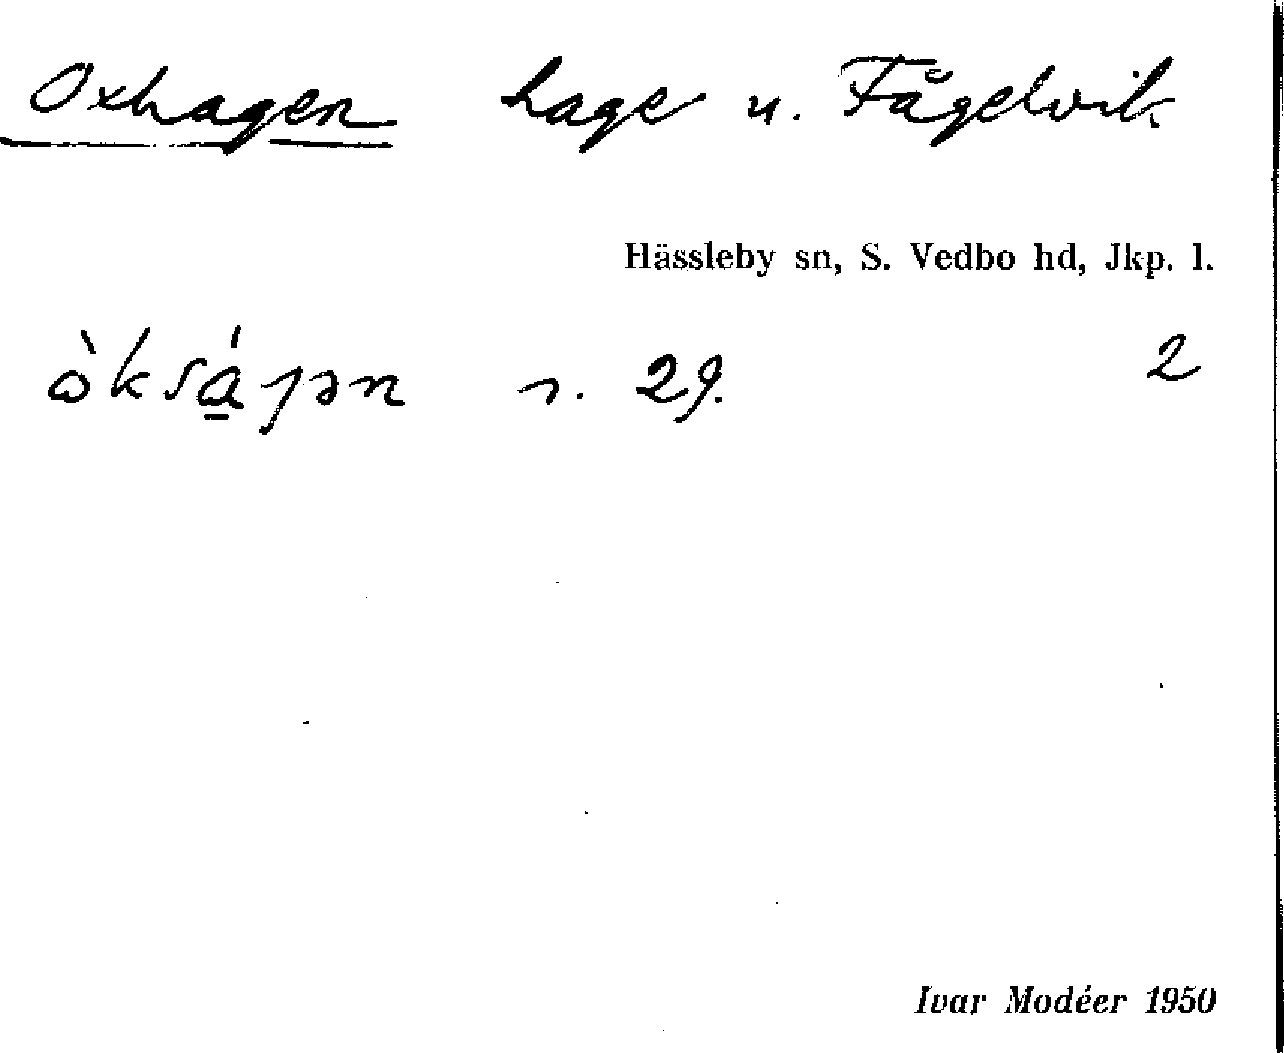 Oxhagen hage u. Fågelvik
Hässleby sn, S. Vedbo hd, Jkp. l.
2
29.
Ivar Modéer 1950